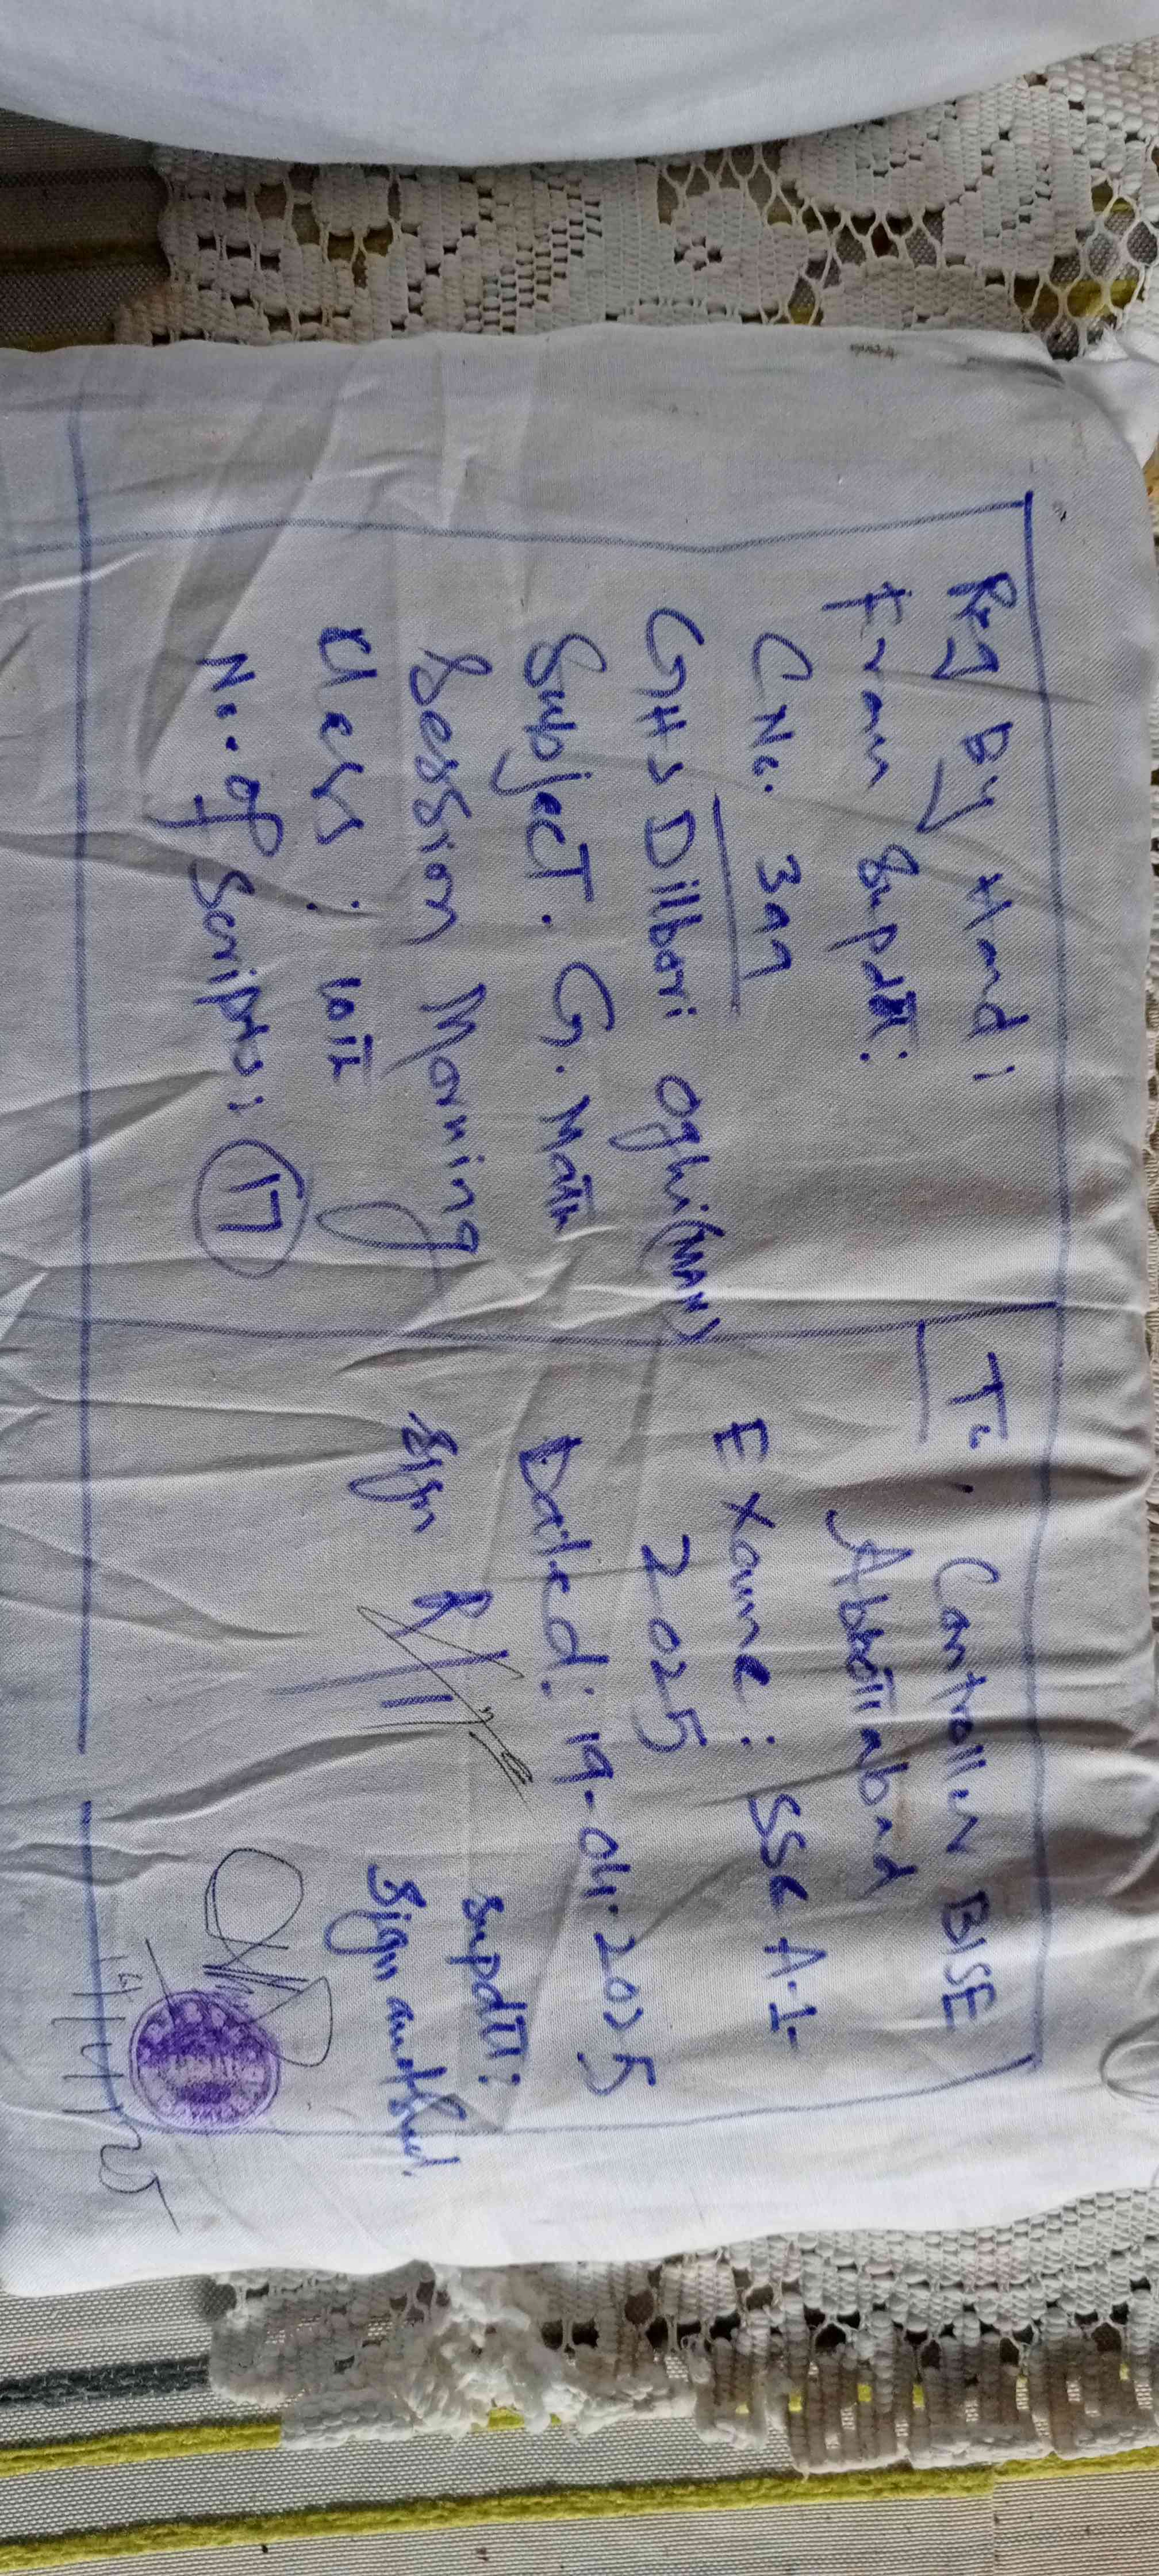 Reg By Hand:
From Supdtt:
C No. 347
GHS Dilbori Oghi (MAN)
Subject. G. Math
Session Morning
Class: 10th
No. of Scripts: 17
To.
Controller BISE
Abbottabad
Exame: SSC A-I-
2025
Dated: 19-04-2025
Sign
Supdtt:
Sign